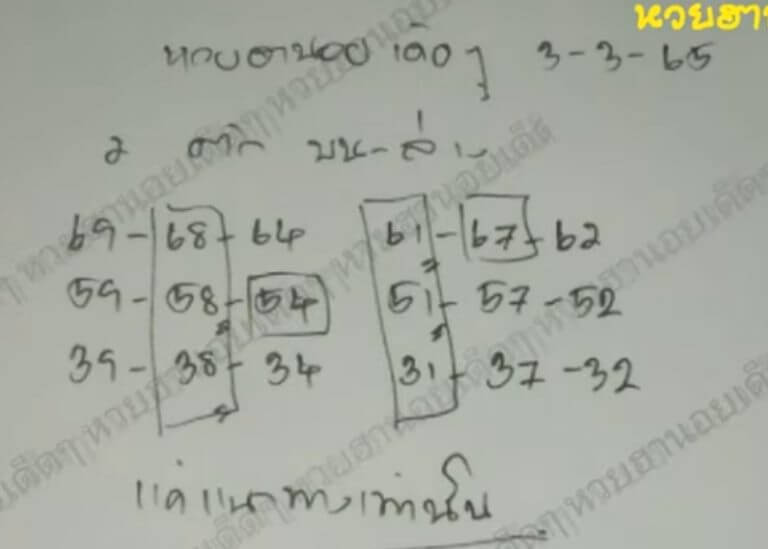 หวยฮา
หวยฮานอย เด็ดๆ 3-3-65
2 ตัว บน-ล่าง
69-68-64 61-67-62
59-58-54 51-57-52
39-38-34 31-37-32
แค่แนวทางเท่านั้น